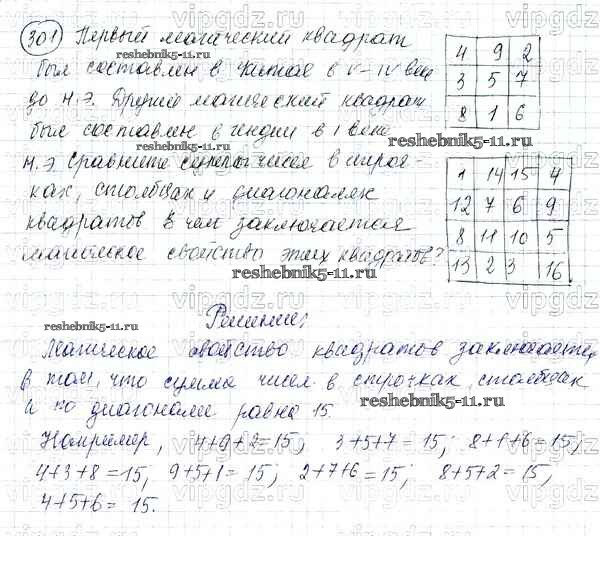 301 Первый магический квадрат
был составлен в Китае в V-IV веке
до н.э. Другой магический квадрат
был составлен в Индии в I веке
н.э. Сравните суммы чисел в строч-
ках, столбцах и диагоналях
квадратов. В чем заключается
магическое свойство этих квадратов?
4 9 2
3 5 7
8 1 6
1 14 15 4
12 7 6 9
8 11 10 5
13 2 3 16
Решение:
Магическое свойство квадратов заключается
в том, что сумма чисел в строчках, столбцах
и по диагонали равна 15.
Например, 4+9+2=15, 3+5+7=15; 8+1+6=15;
4+3+8=15, 9+5+1=15; 2+7+6=15; 8+5+2=15;
4+5+6=15.
reshebnik5-11.ru
reshebnik5-11.ru
reshebnik5-11.ru
reshebnik5-11.ru
reshebnik5-11.ru
vipgdz.ru